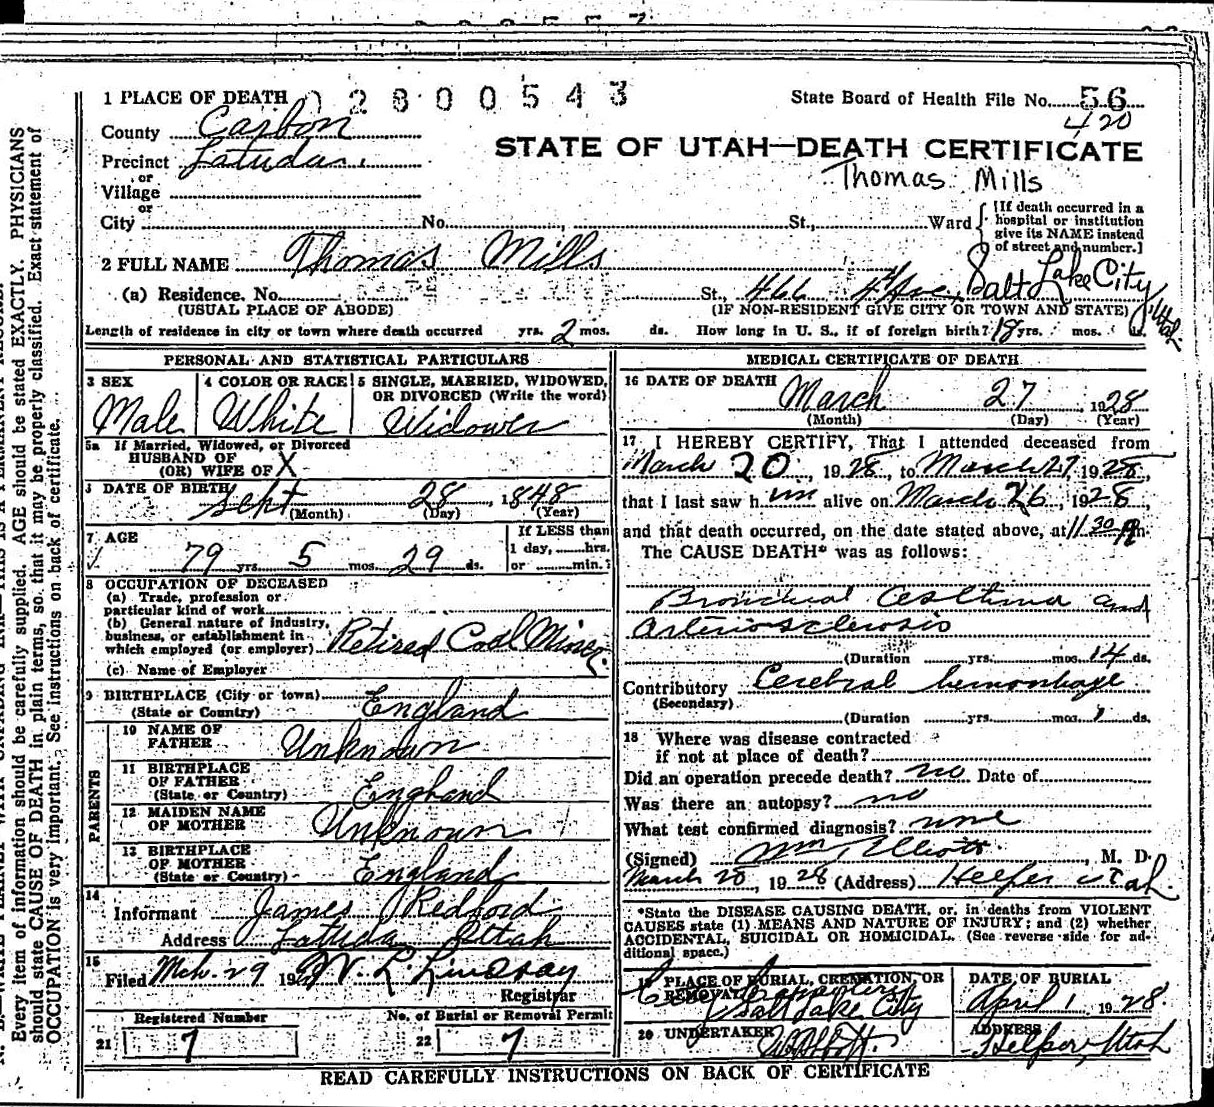 1 PLACE OF DEATH 02800543
State Board of Health File No. 56
420
County Carbon
Precinct Latuda
or
Village
or
City No. St., Ward
[If death occurred in a hospital or institution give its NAME instead of street and number.]
STATE OF UTAH—DEATH CERTIFICATE
Thomas Mills
2 FULL NAME Thomas Mills
(a) Residence. No. St., 466 4th Ave, Salt Lake City, Utah
(USUAL PLACE OF ABODE) (IF NON-RESIDENT GIVE CITY OR TOWN AND STATE)
Length of residence in city or town where death occurred yrs. 2 mos. ds. How long in U. S., if of foreign birth? 18 yrs. mos. ds.
PERSONAL AND STATISTICAL PARTICULARS
3 SEX 4 COLOR OR RACE 5 SINGLE, MARRIED, WIDOWED,
OR DIVORCED (Write the word)
Male White Widower
5a If Married, Widowed, or Divorced
HUSBAND OF
(OR) WIFE OF X
DATE OF BIRTH Sept 28, 1848
(Month) (Day) (Year)
7 AGE If LESS than
79 yrs. 5 mos. 29 ds. 1 day, hrs.
or min.?
8 OCCUPATION OF DECEASED
(a) Trade, profession or
particular kind of work
(b) General nature of industry,
business, or establishment in
which employed (or employer) Retired Coal Miner
(c) Name of Employer
9 BIRTHPLACE (City or town)
(State or Country) England
PARENTS
10 NAME OF
FATHER Unknown
11 BIRTHPLACE
OF FATHER
(State or Country) England
12 MAIDEN NAME
OF MOTHER Unknown
13 BIRTHPLACE
OF MOTHER
(State or Country) England
14
Informant James J Redford
Address Latuda Utah
15
Filed Mch. 29 19 W. L. Lindsay
Registrar
Registered Number No. of Burial or Removal Permit
21 7 22 7
MEDICAL CERTIFICATE OF DEATH
16 DATE OF DEATH March 27, 1928
(Month) (Day) (Year)
17 I HEREBY CERTIFY, That I attended deceased from
March 20, 1928, to March 27, 1928,
that I last saw him alive on March 26, 1928,
and that death occurred, on the date stated above, at 11 30 m.
The CAUSE DEATH* was as follows:
Bronchial Asthma and
Arteriosclerosis
(Duration yrs. mos. 14 ds.
Contributory Cerebral hemorrhage
(Secondary)
(Duration yrs. mos. 1 ds.
18 Where was disease contracted
if not at place of death?
Did an operation precede death? no Date of
Was there an autopsy? no
What test confirmed diagnosis? none
(Signed) Wm Elliott, M. D.
March 28, 1928 (Address) Helper Utah.
*State the DISEASE CAUSING DEATH, or, in deaths from VIOLENT
CAUSES state (1) MEANS AND NATURE OF INJURY; and (2) whether
ACCIDENTAL, SUICIDAL OR HOMICIDAL. (See reverse side for additional space.)
PLACE OF BURIAL, CREMATION, OR
REMOVAL
Salt Lake City
DATE OF BURIAL
April 1 1928.
20 UNDERTAKER
ADDRESS
Helper, Utah
READ CAREFULLY INSTRUCTIONS ON BACK OF CERTIFICATE
Every item of information should be carefully supplied. AGE should be stated EXACTLY. PHYSICIANS
should state CAUSE OF DEATH in plain terms, so that it may be properly classified. Exact statement of
OCCUPATION is very important. See instructions on back of certificate.